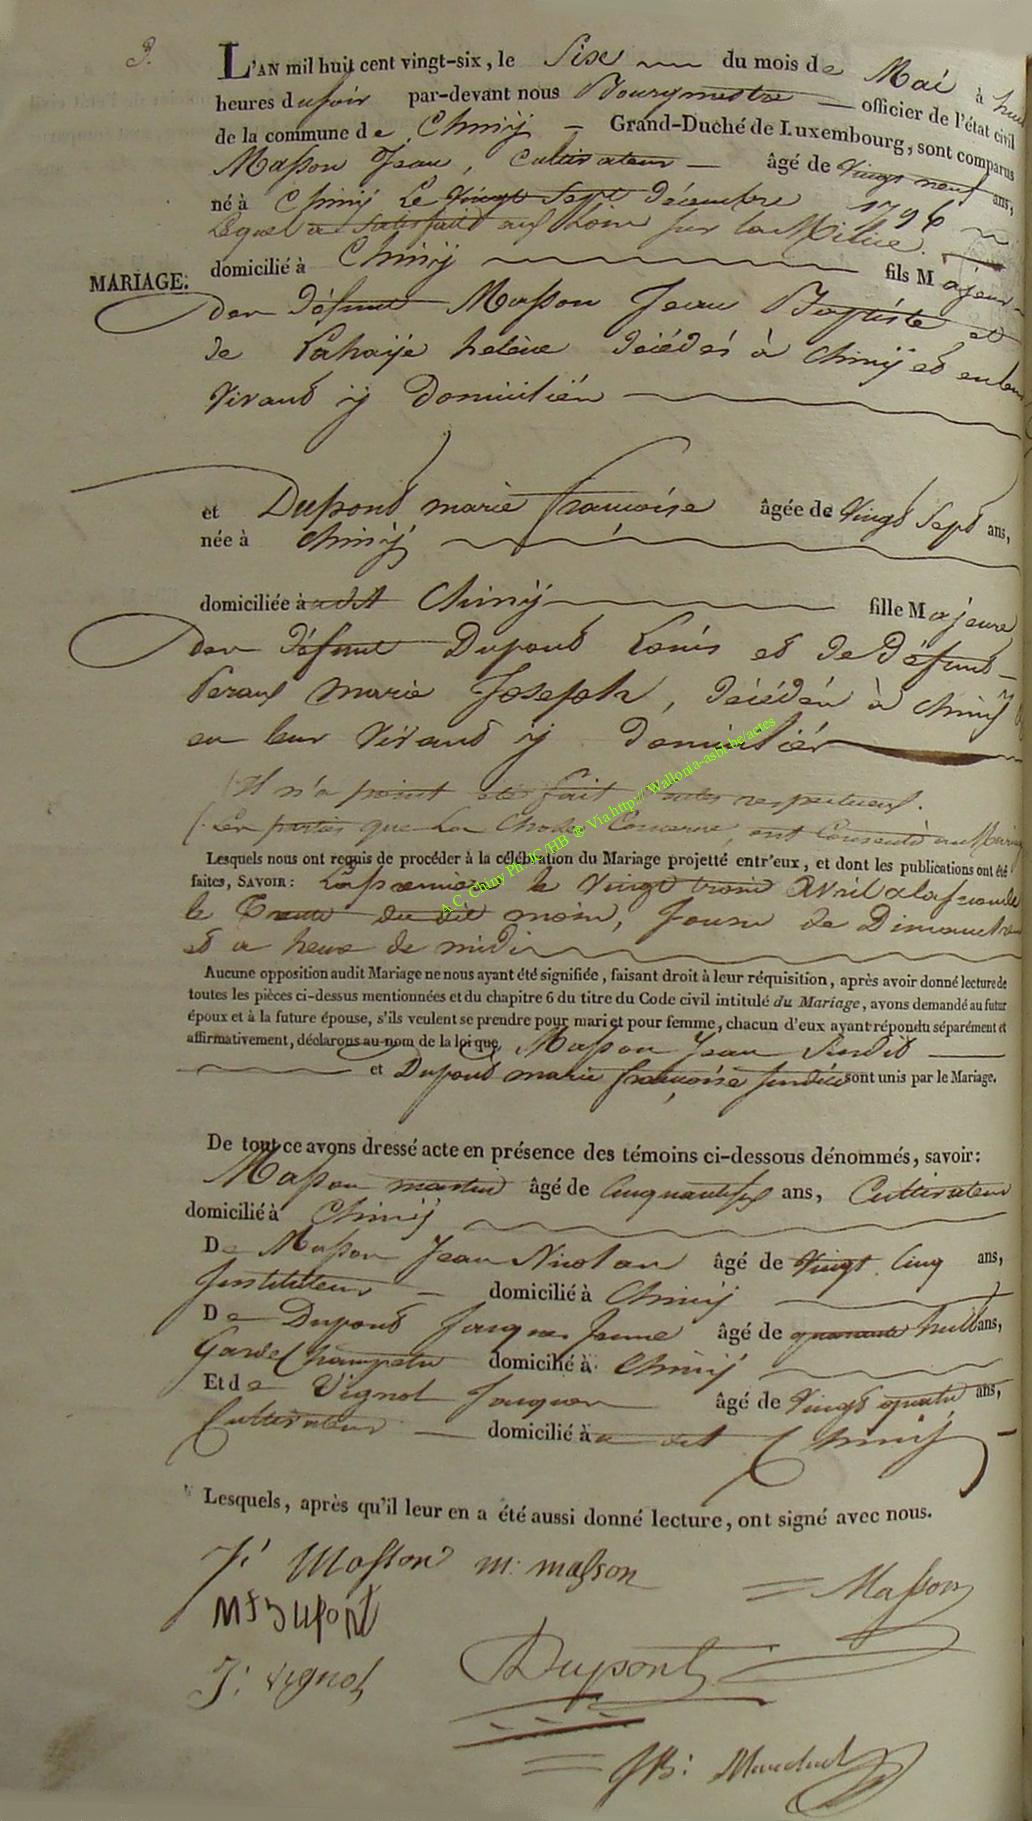 3.
L'AN mil huit cent vingt-six, le Six du mois de Mai à huit
heures du soir par-devant nous Bourgmestre officier de l'état civil
de la commune de Chiny Grand-Duché de Luxembourg, sont comparus
Masson Jean, Cultivateur âgé de Vingt neuf ans,
né à Chiny Le Vingt Sept Décembre 1796
Lequel a satisfait aux Lois sur la Milice.
domicilié à Chiny fils Majeur
MARIAGE.
des défunt Masson Jean Baptiste et
de Lahaije helène décédés à Chiny et en leur
Vivant ij Domiciliés
et Dupont marie francoise âgée de Vingt Sept ans,
née à Chiny
domiciliée à udit Chiny fille Majeure
des défunt Dupont Louis et de Défunt
marie Joseph, décédés à Chiny
en leur Vivant ij domiciliés
(Il n'a point été fait d'actes respectueux.
(Les parties que La Chose Concerne, ont Consenti au Mariage
Lesquels nous ont requis de procéder à la célébration du Mariage projetté entr'eux, et dont les publications ont été
faites, SAVOIR: La premiere le Vingt trois Avril a la seconde
le Trente du dit mois, Jours de Dimanche
et a heure de midi
Aucune opposition audit Mariage ne nous ayant été signifiée, faisant droit à leur réquisition, après avoir donné lecture de
toutes les pièces ci-dessus mentionnées et du chapitre 6 du titre du Code civil intitulé du Mariage, avons demandé au futur
époux et à la future épouse, s'ils veulent se prendre pour mari et pour femme, chacun d'eux ayant répondu séparément et
affirmativement, déclarons au nom de la loi que Masson Jean Susdit
et Dupont marie françoise Susdite sont unis par le Mariage.
De tout ce avons dressé acte en présence des témoins ci-dessous dénommés, savoir:
Masson martin âgé de Cinquante six ans, Cultivateur
domicilié à Chiny
De Masson Jean Nicolas âgé de Vingt Cinq ans,
Instituteur domicilié à Chiny
De Dupont Jacques Jeune âgé de quarante huit ans,
Garde Champetre domicilié à Chiny
Et de Vignol Jacques âgé de Vingt quatre ans,
Cultivateur domicilié à u dit Chiny
Lesquels, après qu'il leur en a été aussi donné lecture, ont signé avec nous.
J: Masson m: masson Masson
MF DUPONT
J: vignol Dupont
JB:
A.C. Chiny Ph. JC/HB ® Via http:// Wallonia-asbl.be/actes